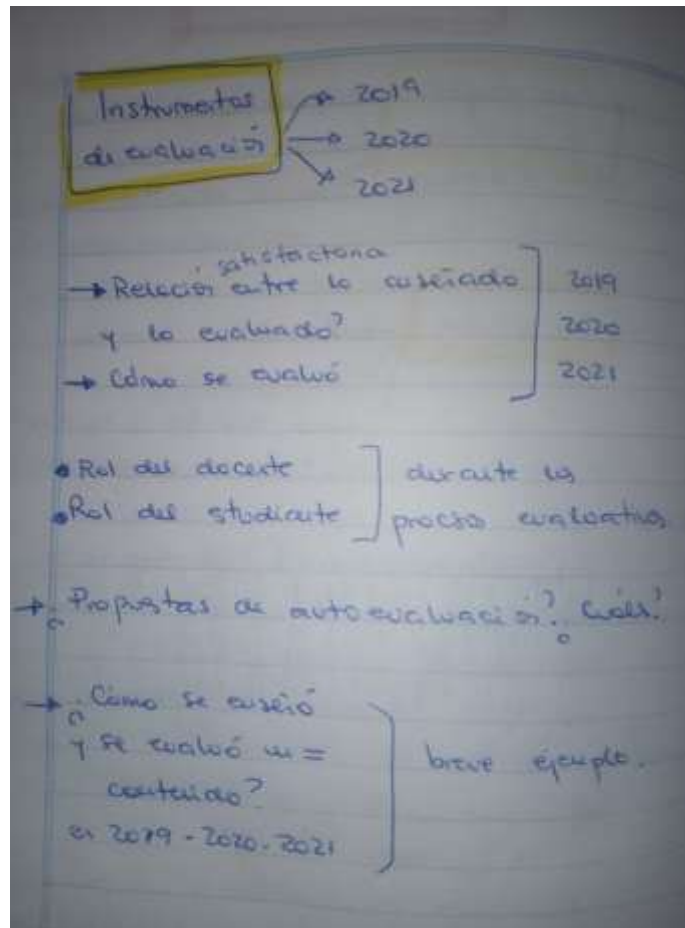 Instrumentos
de evaluación
→ 2019
→ 2020
→ 2021
satisfactoria
→ Relación entre lo enseñado
y lo evaluado?
→ Cómo se evaluó
2019
2020
2021
• Rol del docente
• Rol del studiante
durante los
procesos evaluativos
→ ¿Propuestas de autoevaluación? ¿Cuáles?
→ ¿Cómo se enseñó
y se evaluó un =
contenido?
en 2019 - 2020 - 2021
breve ejemplo.